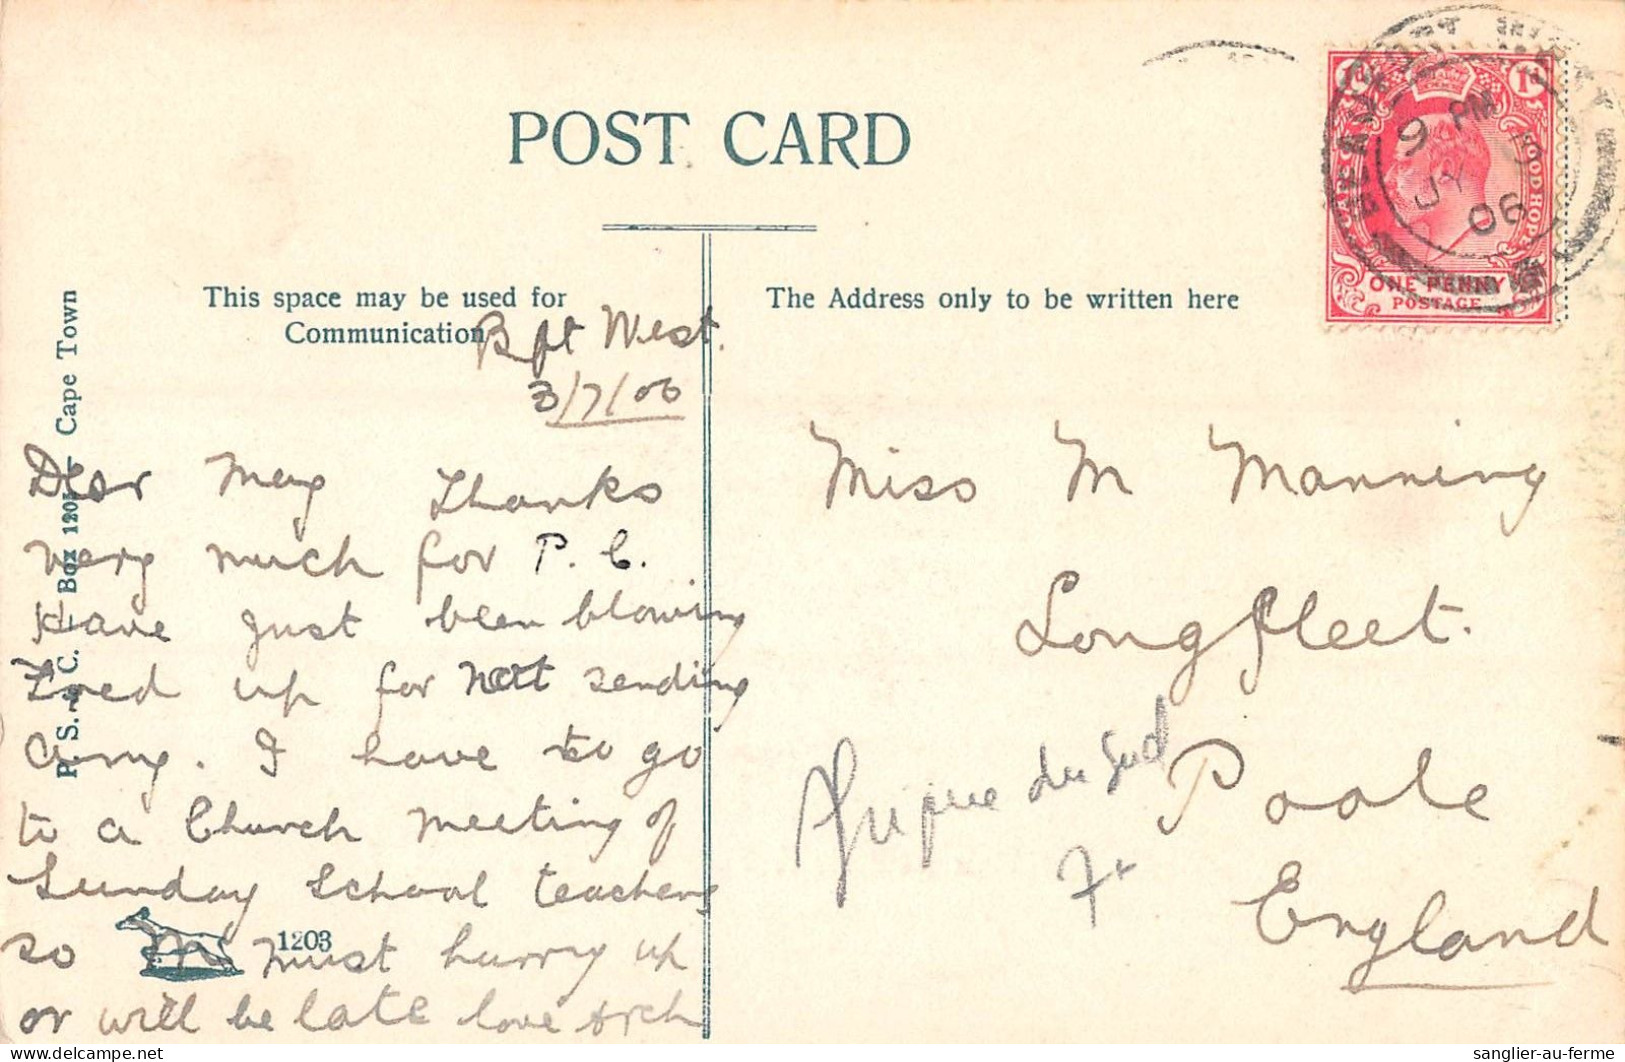 POST CARD
This space may be used for
Communication
The Address only to be written here
P. S. & C. — Box 1201 — Cape Town
Bft West.
3/7/06
Dear May Thanks
very much for P. C.
Have just been blowing
Fred up for not sending
any. I have to go
to a Church meeting of
Sunday School teachers
so must hurry up
or will be late love Arch
1203
Miss M Manning
Longfleet.
Poole
England
Afrique du Sud
7+
CAPE OF GOOD HOPE
1d 1d
ONE PENNY
POSTAGE
BEAUFORT WEST
9 PM
JY 3
06
sanglier-au-ferme
www.delcampe.net